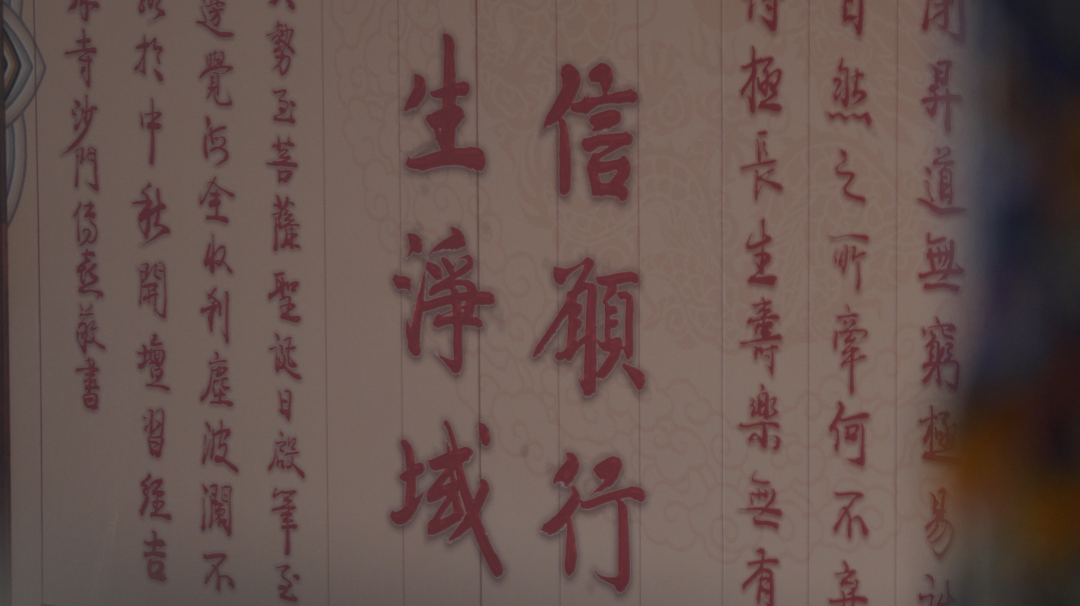 昇道無窮極易
自然之所牽何不棄
得極長生壽樂無有
信願行
生淨域
大勢至菩薩聖誕日啟筆至
邊覺海全收剎塵波瀾不
於中秋開壇習經吉
寺沙門傳
書